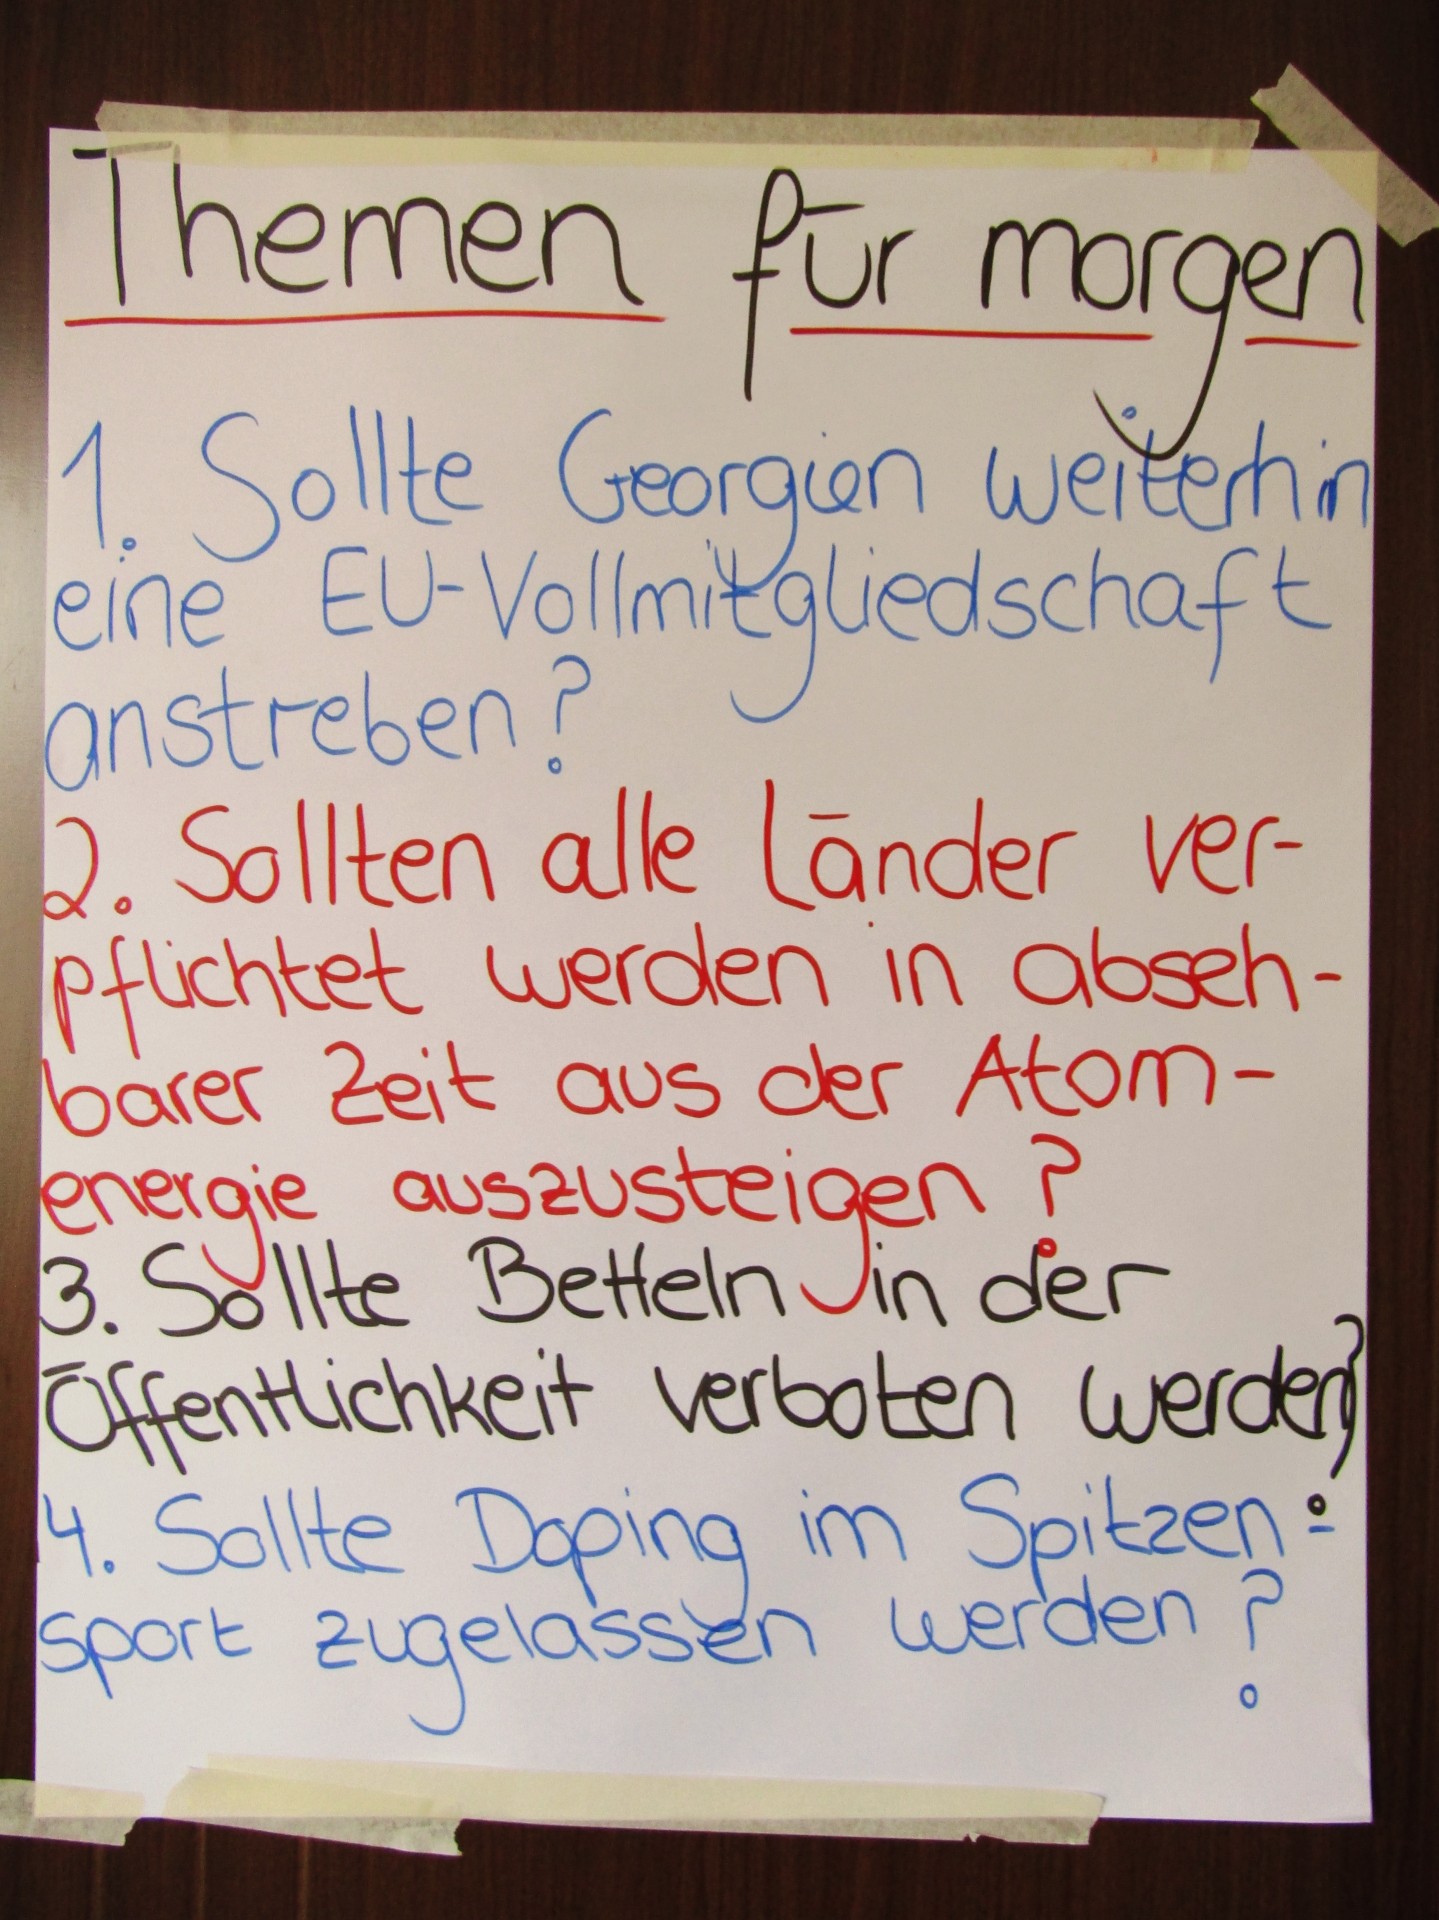 Themen für morgen
1. Sollte Georgien weiterhin
eine EU-Vollmitgliedschaft
anstreben?
2. Sollten alle Länder ver-
pflichtet werden in abseh-
barer Zeit aus der Atom-
energie auszusteigen?
3. Sollte Betteln in der
Öffentlichkeit verboten werden?
4. Sollte Doping im Spitzen-
sport zugelassen werden?